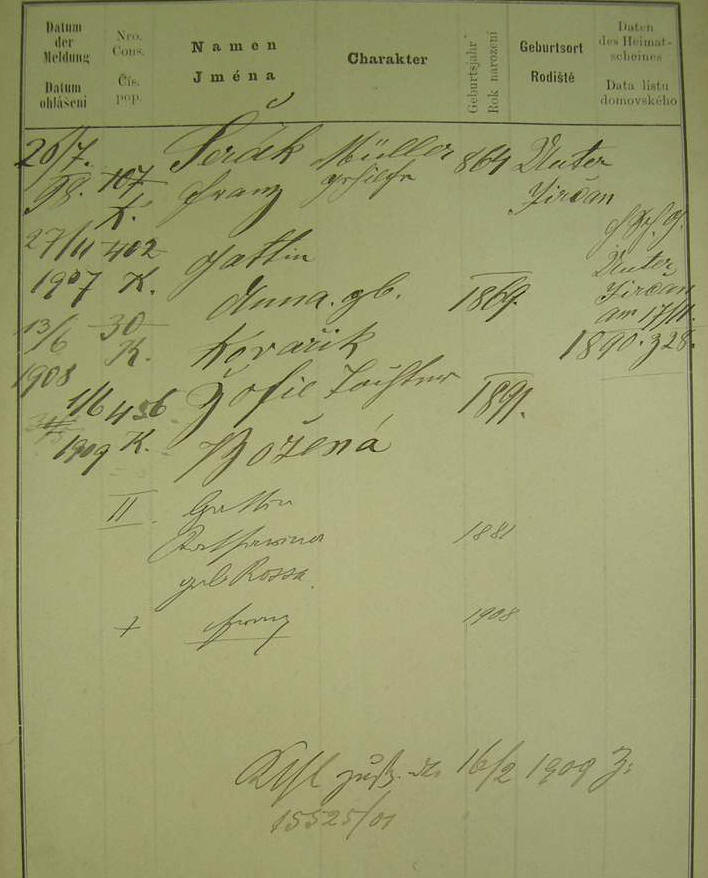 Datum der Meldung
Datum ohlášení
Nro. Cons.
Čís. pop.
Namen
Jména
Charakter
Geburtsjahr
Rok narození
Geburtsort
Rodiště
Daten des Heimat-scheines
Data listu domovského
20/7. Šerák Müller 864 Unter
98. 107 Franz Jirčan
K.
27/11 402 Gattin Unter
1907 K. Anna gb. 1869. Jirčan
am 17/11.
13/6 30 Kovařik 1890. Z 28.
K.
1908 Žofie Tochter 1891.
1/6 456
1909 K. Božená
II. Gattin
Katharina 1881
geb Rossa.
+ Franz 1908
16/2 1909 Z:
15525/01